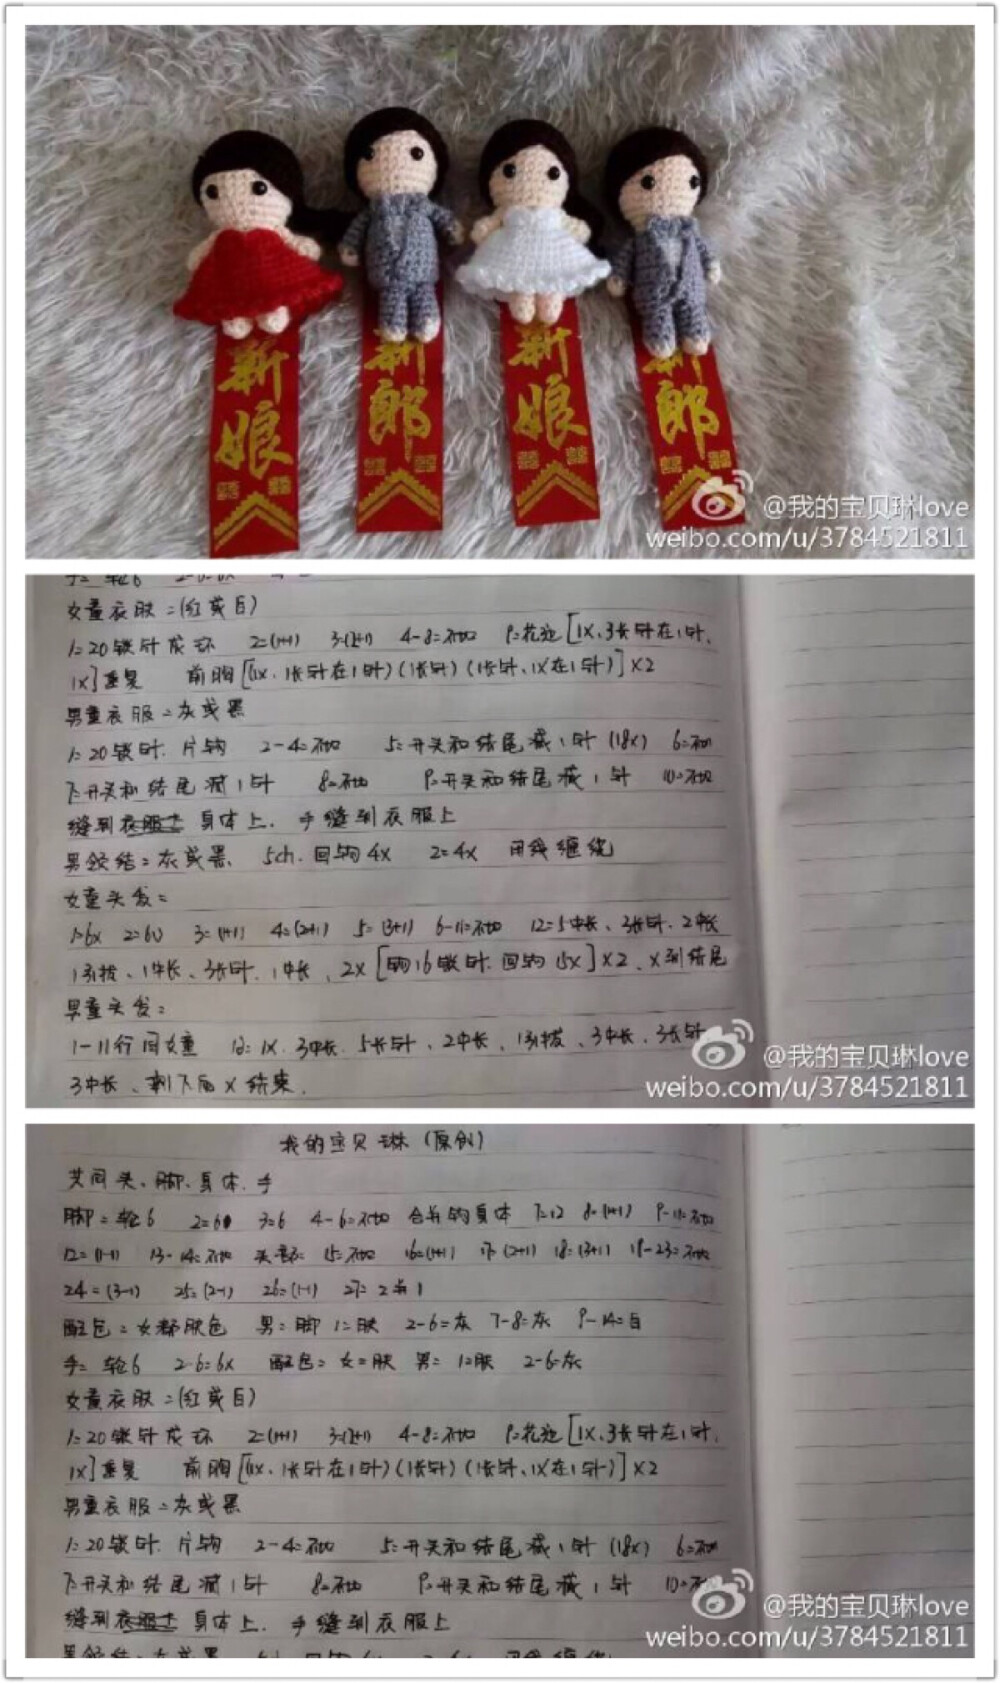 新娘
新郎
新娘
新郎
@我的宝贝琳love
weibo.com/u/3784521811
手=轮6 2-6=6x
女童衣肤=(红或白)
1=20锁针成环 2=(1+1) 3=(2+1) 4-8=不加 9=花边[1X、3长针在1针、
1X]重复 前胸[(1x、1长针在1针)(1长针)(1长针、1X在1针)]×2
男童衣服=灰或黑
1=20锁针.片钩 2-4=不加 5=开头和结尾减1针(18x) 6=不加
7=开头和结尾减1针 8=不加 9=开头和结尾减1针 10=不加
缝到衣服上身体上.手缝到衣服上
男领结=灰或黑. 5ch.回钩4x 2=4x 用线缠绕
女童头发=
1=6x 2=6v 3=(1+1) 4=(2+1) 5=(3+1) 6-11=不加 12=5中长、3长针、2中长
1引拔、1中长、3长针、1中长、2X[钩16锁针.回钩15X]×2、X到结尾
男童头发:
1-11行同女童 12=1X.3中长.5长针、2中长、1引拔、3中长、3长针
3中长、剩下的X结束.
@我的宝贝琳love
weibo.com/u/3784521811
我的宝贝琳(原创)
共同头、脚、身体、手
脚=轮6 2=6 3=6 4-6=不加 合并钩身体 7=12 8=(1+1) 9-11=不加
12=(1-1) 13-14=不加 头部: 15=不加 16=(1+1) 17=(2+1) 18=(3+1) 19-23=不加
24=(3-1) 25=(2-1) 26=(1-1) 27=2并1
配色=女都肤色 男=脚1=肤 2-6=灰 7-8=灰 9-14=白
手=轮6 2-6=6x 配色=女=肤 男=1=肤 2-6=灰
女童衣肤=(红或白)
1=20锁针成环 2=(1+1) 3=(2+1) 4-8=不加 9=花边[1X、3长针在1针、
1X]重复 前胸[(1x、1长针在1针)(1长针)(1长针、1X在1针)]×2
男童衣服=灰或黑
1=20锁针.片钩 2-4=不加 5=开头和结尾减1针(18x) 6=不加
7=开头和结尾减1针 8=不加 9=开头和结尾减1针 10=不加
缝到衣服上身体上.手缝到衣服上
@我的宝贝琳love
weibo.com/u/3784521811